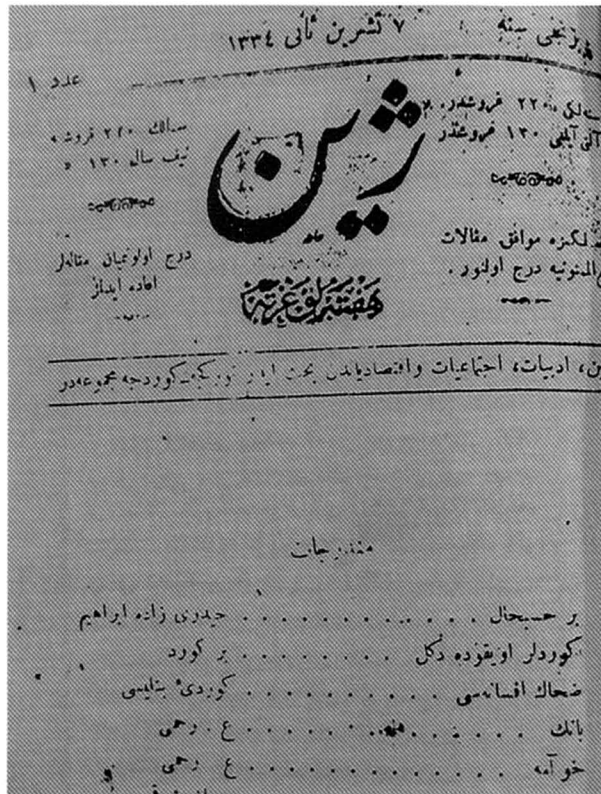 برنجی سنه ٧ تشرین ثانی ١٣٣٤
عدد ١
ژین
سنه‌لكی ٢٢٠ فروشدر.
آلتی آیلغی ١٣٠ فروشدر
سنه‌لك ٢٢٠ فروش
نیف سال ١٣٠ »
موافق مقالات
درج اولنور.
درج اولونمیان مقاله‌لر
اعاده ایدلمز
هفته‌لق غزته
دین، ادبیات، اجتماعیات واقتصادیاتدن بحث ایدر توركجه‌ـ كوردجه مجموعه‌در
مندرجات
بر حسبحال . . . . . . . . . . . . حیدری زاده ابراهیم
كوردلر اویقوده دكل . . . . . . . . بر كورد
ضحاك افسانه‌سی . . . . . . . . . . كوردیٔ بتلیسی
بانك . . . . . . . . . . . . ع. رحمی
خو آمه . . . . . . . . . . . . . ع رحمی